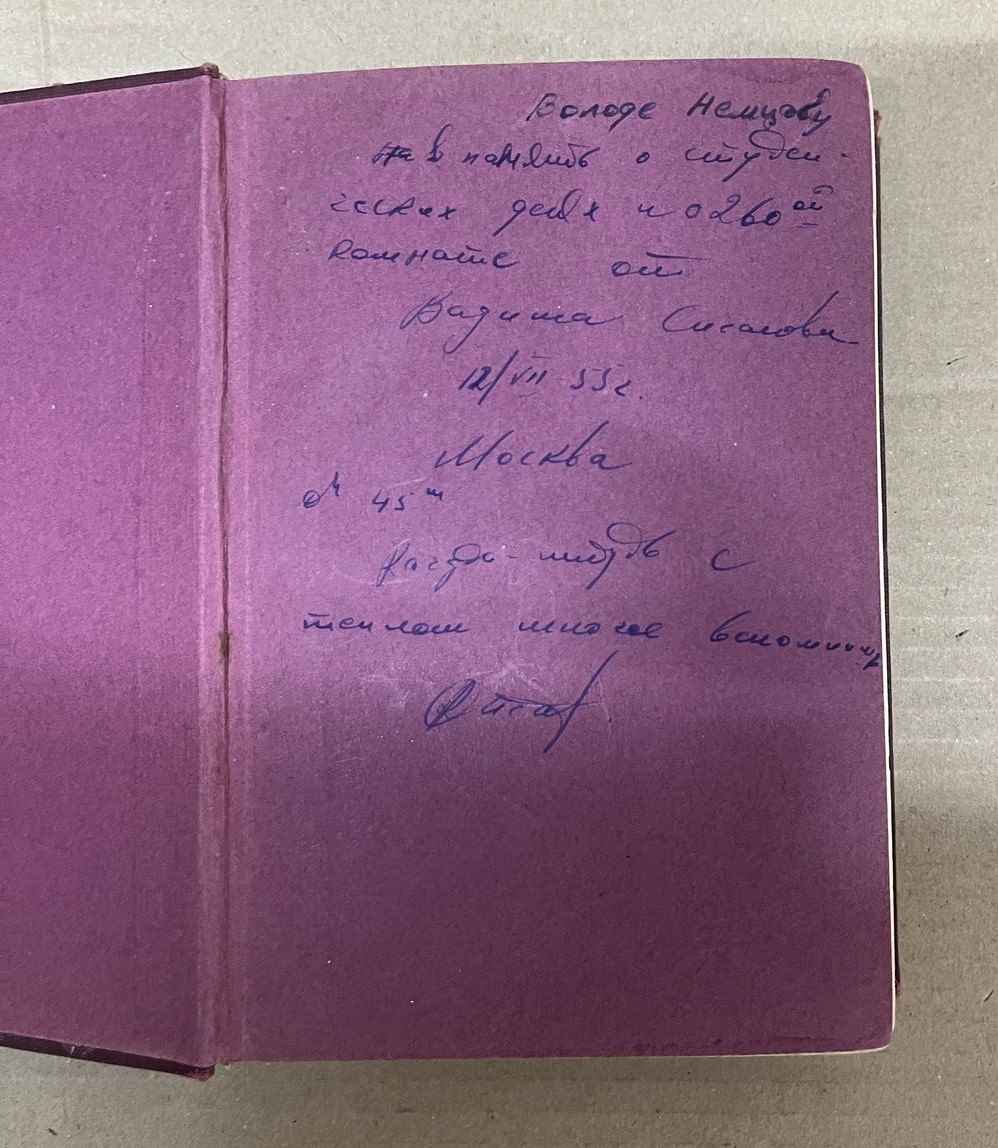 Володе Немцову
на в память о студен-
ческих днях и о 260 ой
комнате от
Вадима
12/VII 55г.
Москва
45
Когда-нибудь с
теплом многое